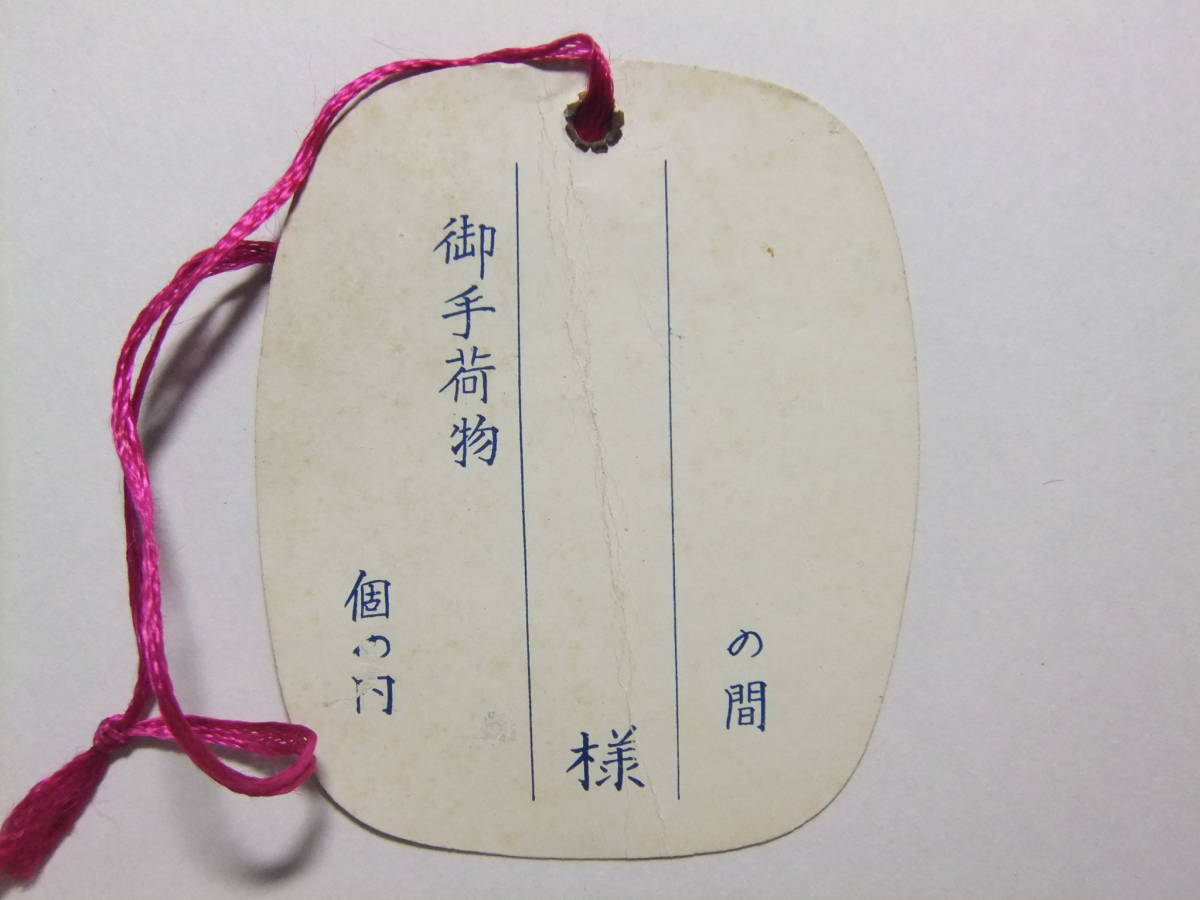 の間
様
御手荷物
個の内